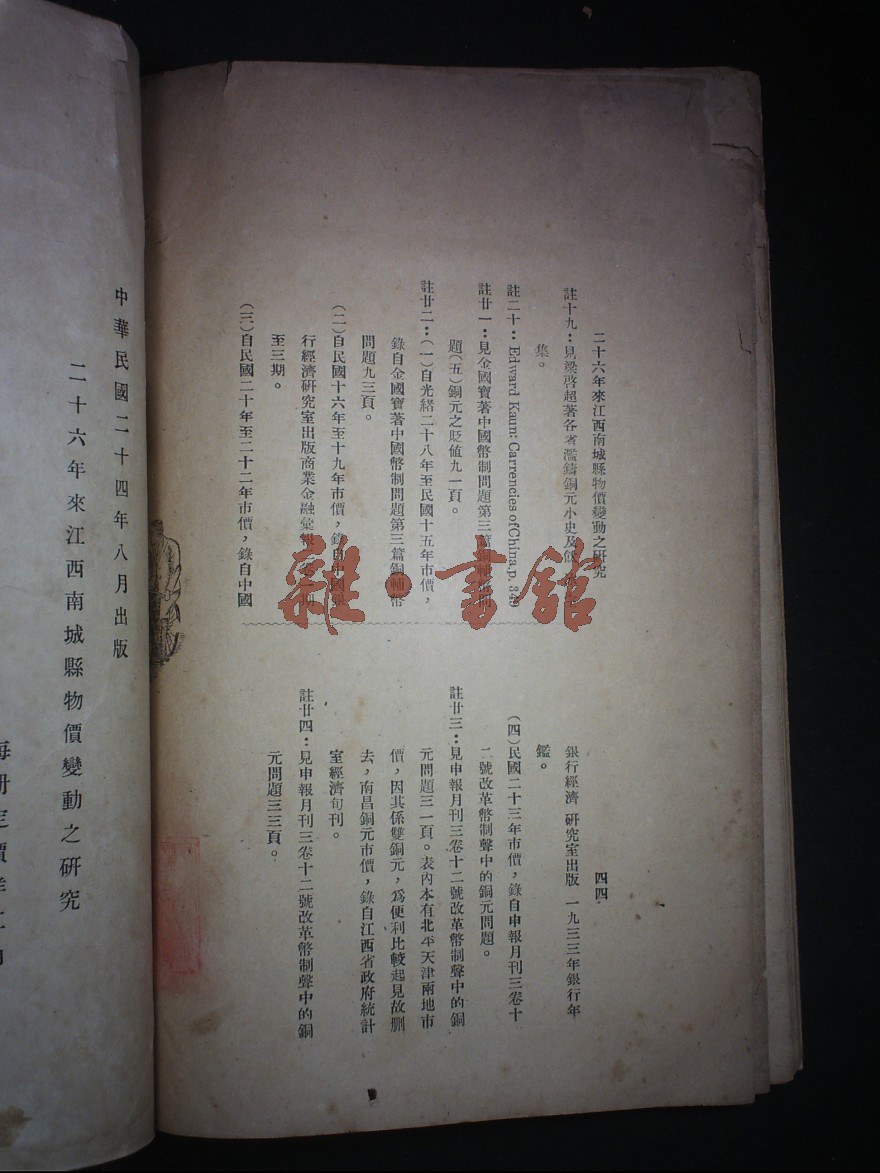 二十六年來江西南城縣物價變動之研究
四四
註十九：見梁啓超著各省濫鑄銅元小史及飲
集。
註二十：Edward Kaun: Carrencies of China, p.
註廿一：見金國寶著中國幣制問題第三篇銅輔幣問
題（五）銅元之貶値九一頁。
註廿二：（一）自光緒二十八年至民國十五年市價，
錄自金國寶著中國幣制問題第三篇銅輔幣
問題九三頁。
（二）自民國十六年至十九年市價，錄自中國銀
行經濟研究室出版商業金融彙報
至三期。
（三）自民國二十年至二十二年市價，錄自中國
銀行經濟研究室出版一九三三年銀行年
鑑。
（四）民國二十三年市價，錄自申報月刊三卷十
二號改革幣制聲中的銅元問題。
註廿三：見申報月刊三卷十二號改革幣制聲中的銅
元問題三一頁。表內本有北平天津兩地市
價，因其係雙銅元，爲便利比較起見故删
去，南昌銅元市價，錄自江西省政府統計
室經濟旬刊。
註廿四：見申報月刊三卷十二號改革幣制聲中的銅
元問題三三頁。
中華民國二十四年八月出版
二十六年來江西南城縣物價變動之研究
每册定價洋
雜·書館